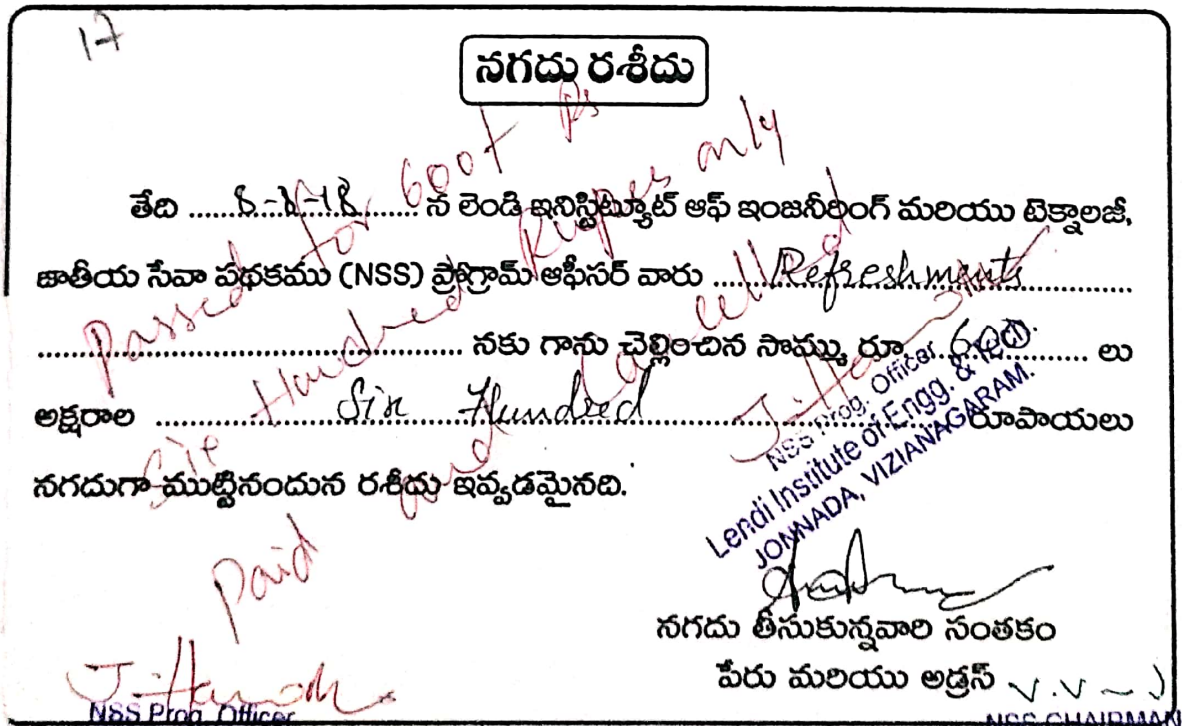 17
నగదు రశీదు
తేది ........................ న లెండి ఇనిస్టిట్యూట్ ఆఫ్ ఇంజనీరింగ్ మరియు టెక్నాలజీ,
జాతీయ సేవా పథకము (NSS) ప్రోగ్రామ్ ఆఫీసర్ వారు ....Refreshments....
........................ నకు గాను చెల్లించిన సొమ్ము రూ...600... లు
అక్షరాల ............ Six Hundred ............ రూపాయలు
నగదుగా ముట్టినందున రశీదు ఇవ్వడమైనది.
Passed for 600/- Rs
Six Hundred Rupees only
Paid and Cancelled
NSS Prog. Officer
Lendi Institute of Engg. & Tech.
JONNADA, VIZIANAGARAM.
నగదు తీసుకున్నవారి సంతకం
పేరు మరియు అడ్రస్
NSS Prog. Officer
NSS CHAIRMAN